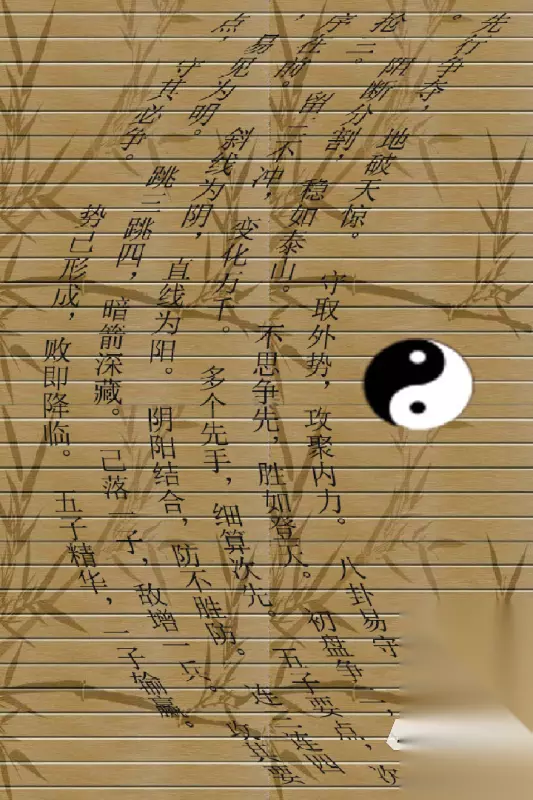 。先行争夺，地破天惊。守取外势，攻聚内力。八卦易守
抢三。阻断分割，稳如泰山。不思争先，胜如登天。初盘争二，
序在前。留三不冲，变化万千。多个先手，细算次先。五子要点，次
，易见为明。斜线为阴，直线为阳。阴阳结合，防不胜防。连三连四
点，守其必争。跳三跳四，暗箭深藏。己落一子，敌增一兵。攻其要
势已形成，败即降临。五子精华，一子输赢。